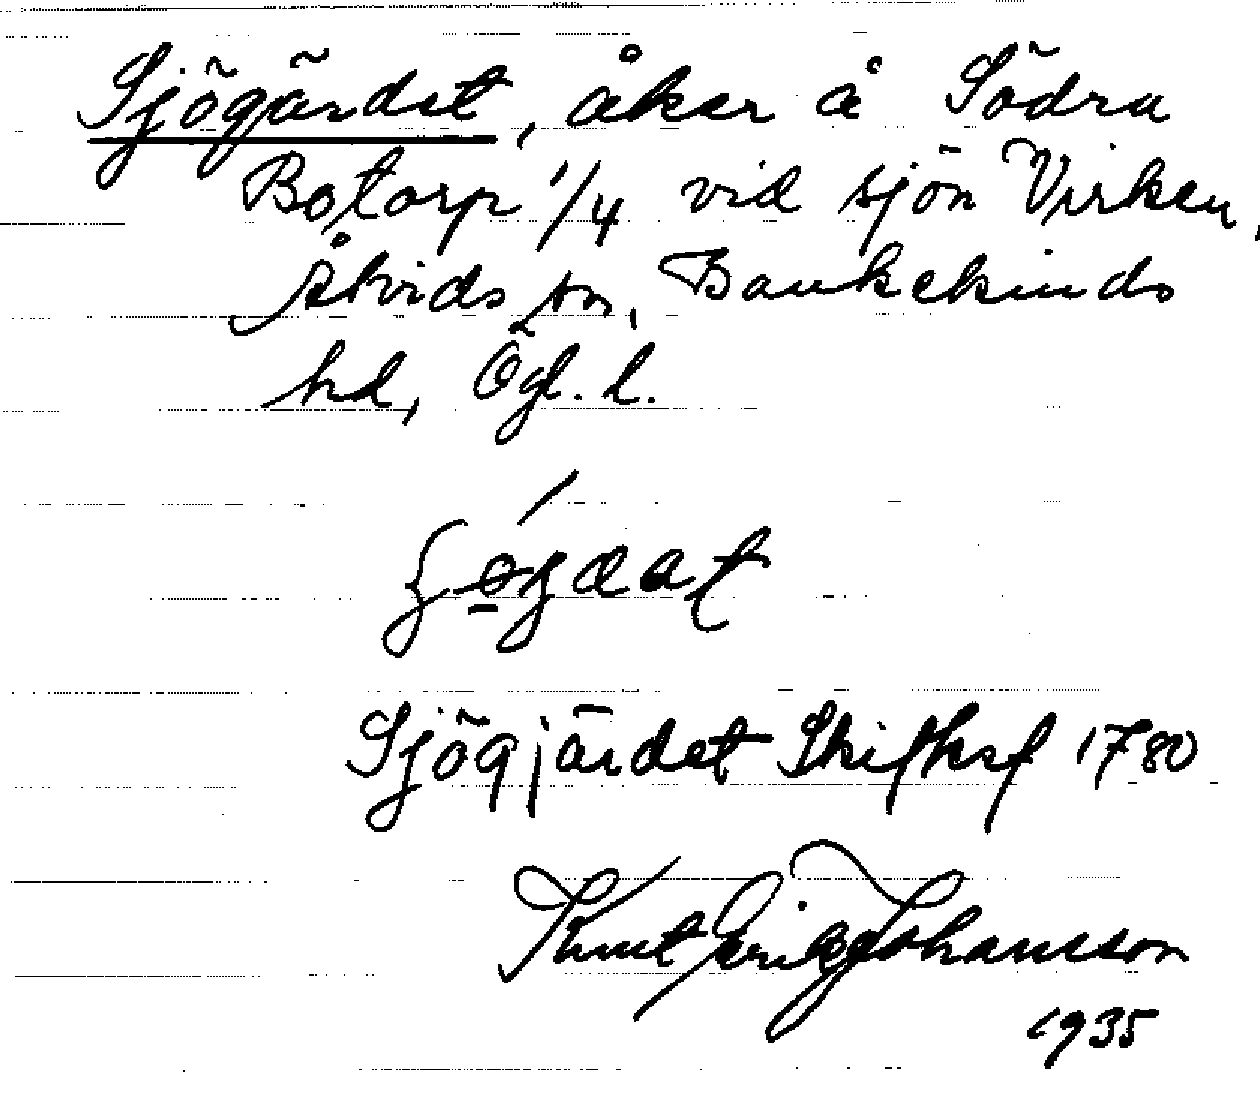 Sjögärdet, åker å Södra
Botorp 1/4 vid sjön Virken,
Åtvids sn, Bankekinds
hd, Ögl. l.
Sjögjärdet Skifksf 1780
Knut Erik Johansson
1935